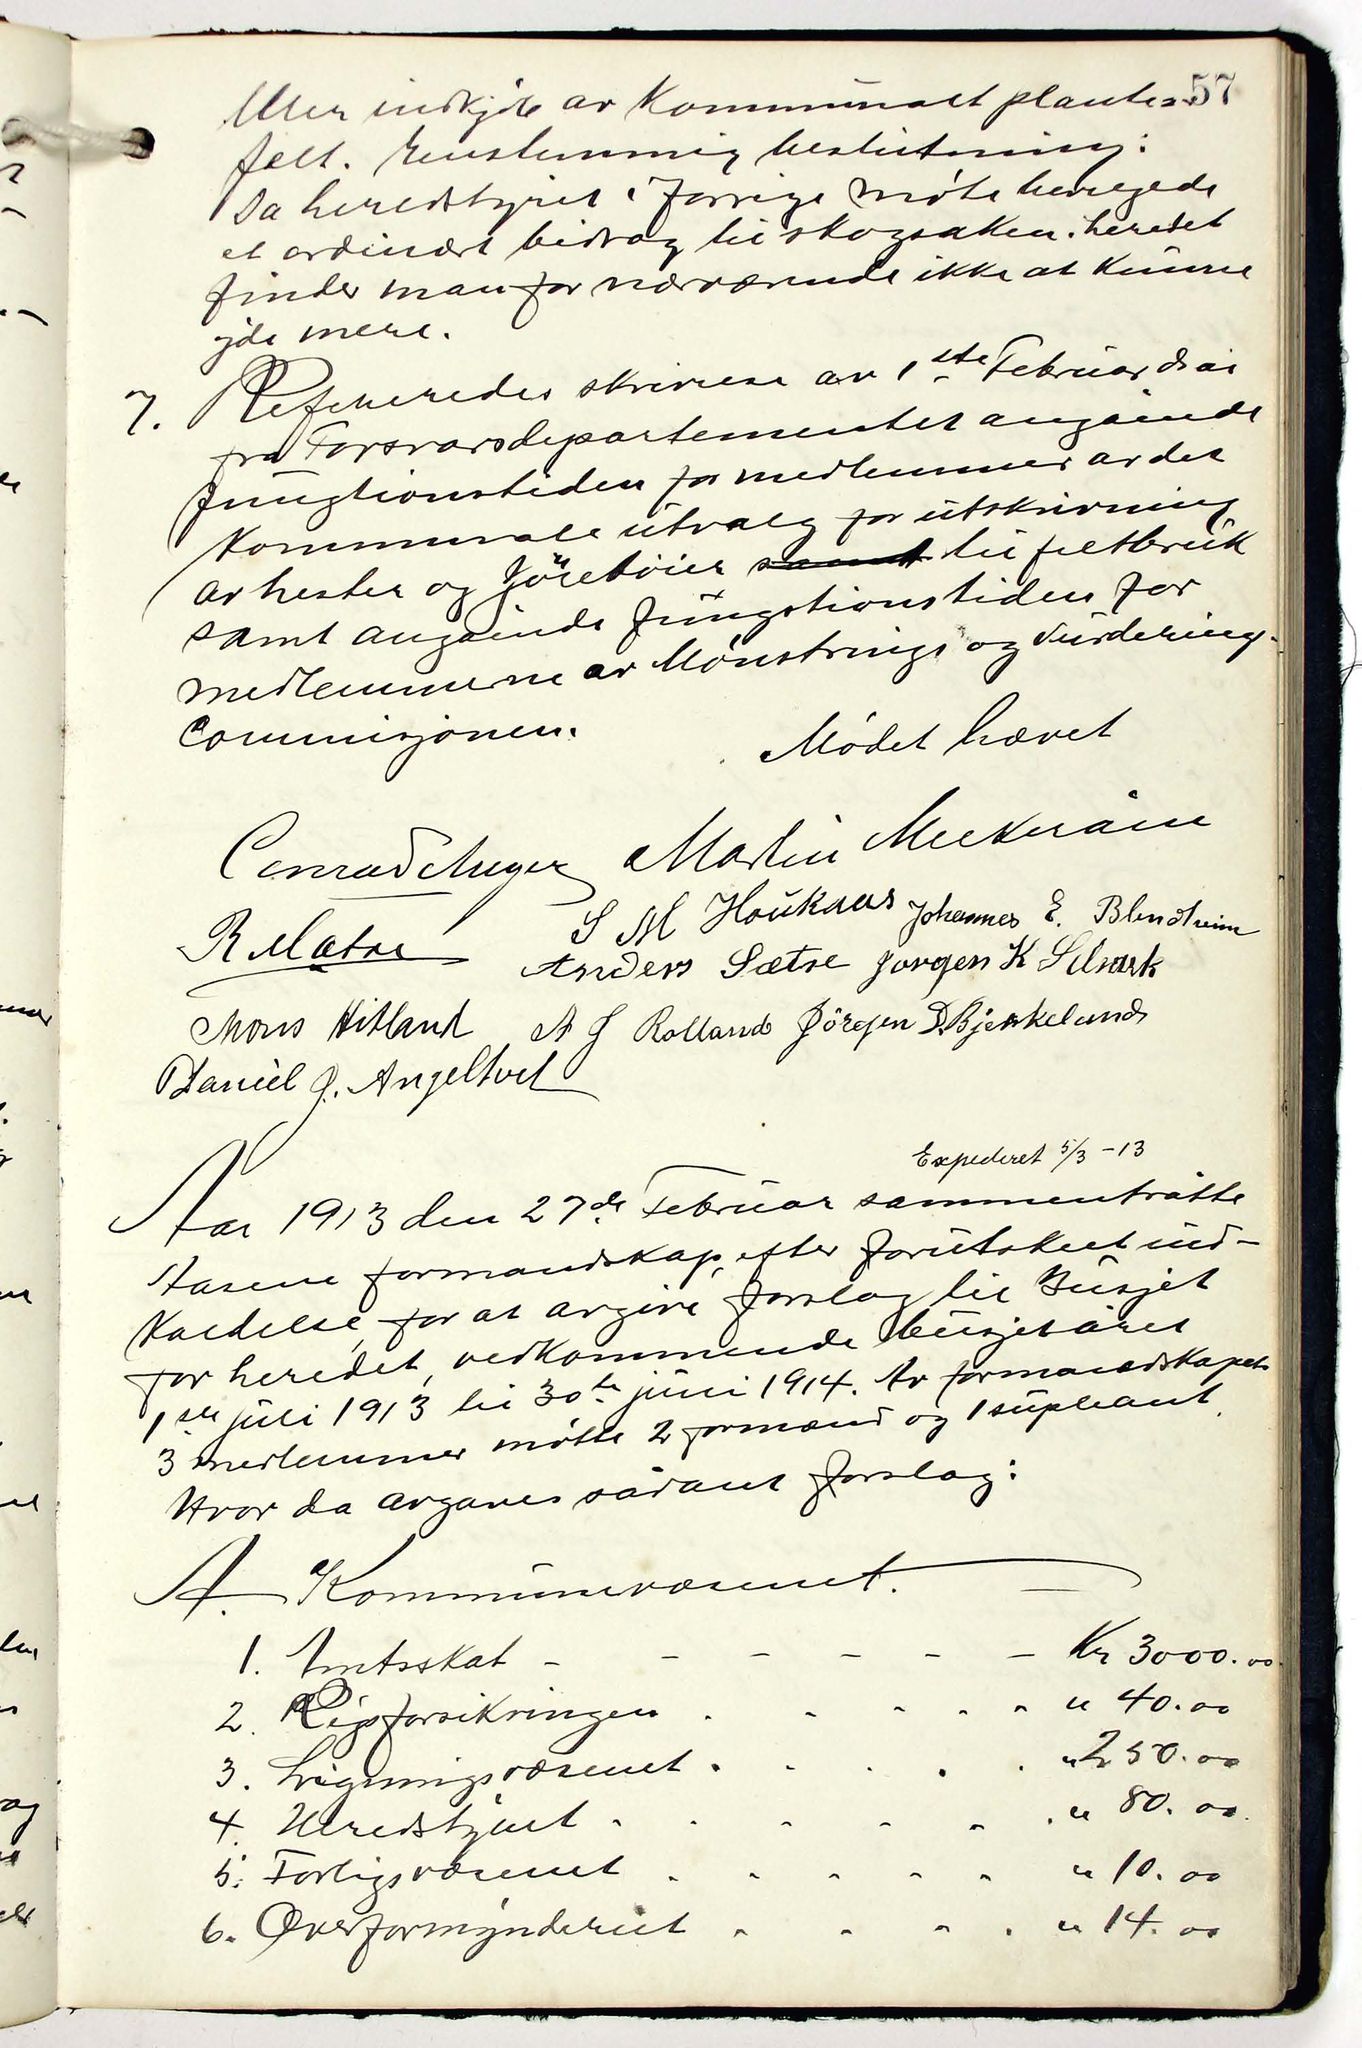 57
eller indkjöb av Kommunalt plante-
felt. Enstemmig beslutning:
Da heredstyret i forrige möte bevegede
et ordinært bidrag til skogsaken i heredet
finder man for nærværende ikke at kunne
yde mere.
7. Refereredes skrivese av 1ste Februar ds. år
fra Forsvarsdepartementet angående
fungtionstiden for medlemmer av det
Kommunale utvalg for utskrivning
av hester og kjöretöier samt til feltbruk
samt angående fungstionstiden for
medlemmerne av Mönstrings og Vurderings-
Commisjonen.
Mödet hævet
Conrad Mnger Martin
R Mætre S M Houkaas Johannes E. Blindheim
Anders Sætre Jorgen K Selvark
Mons Hitland A J Rolland Jörgen D. Bjerkelund
Daniel J. Angeltvet
Expederet 5/3 - 13
Aar 1913 den 27de Februar sammentråtte
Aasene formandskap, efter forutskeet ind-
kaldelse, for at avgive forslag til Busjet
for heredet, vedkommende busjetåret
1ste juli 1913 til 30te juni 1914. Av formandskapets
3 medlemmer mötte 2 formænd og 1 supleant.
Hvor da avgaves sådant forslag:
A. Kommunevæsenet.
1. Amtsskat - - - - - - Kr 3000.00
2. Rigsforsikringen . . . . . " 40.00
3. Ligningsvæsenet . . . . . " 250.00
4. Heredstyret . . . . . . " 80.00
5. Forligsvæsenet . . . . . " 10.00
6. Overformynderiet . . . . " 14.00